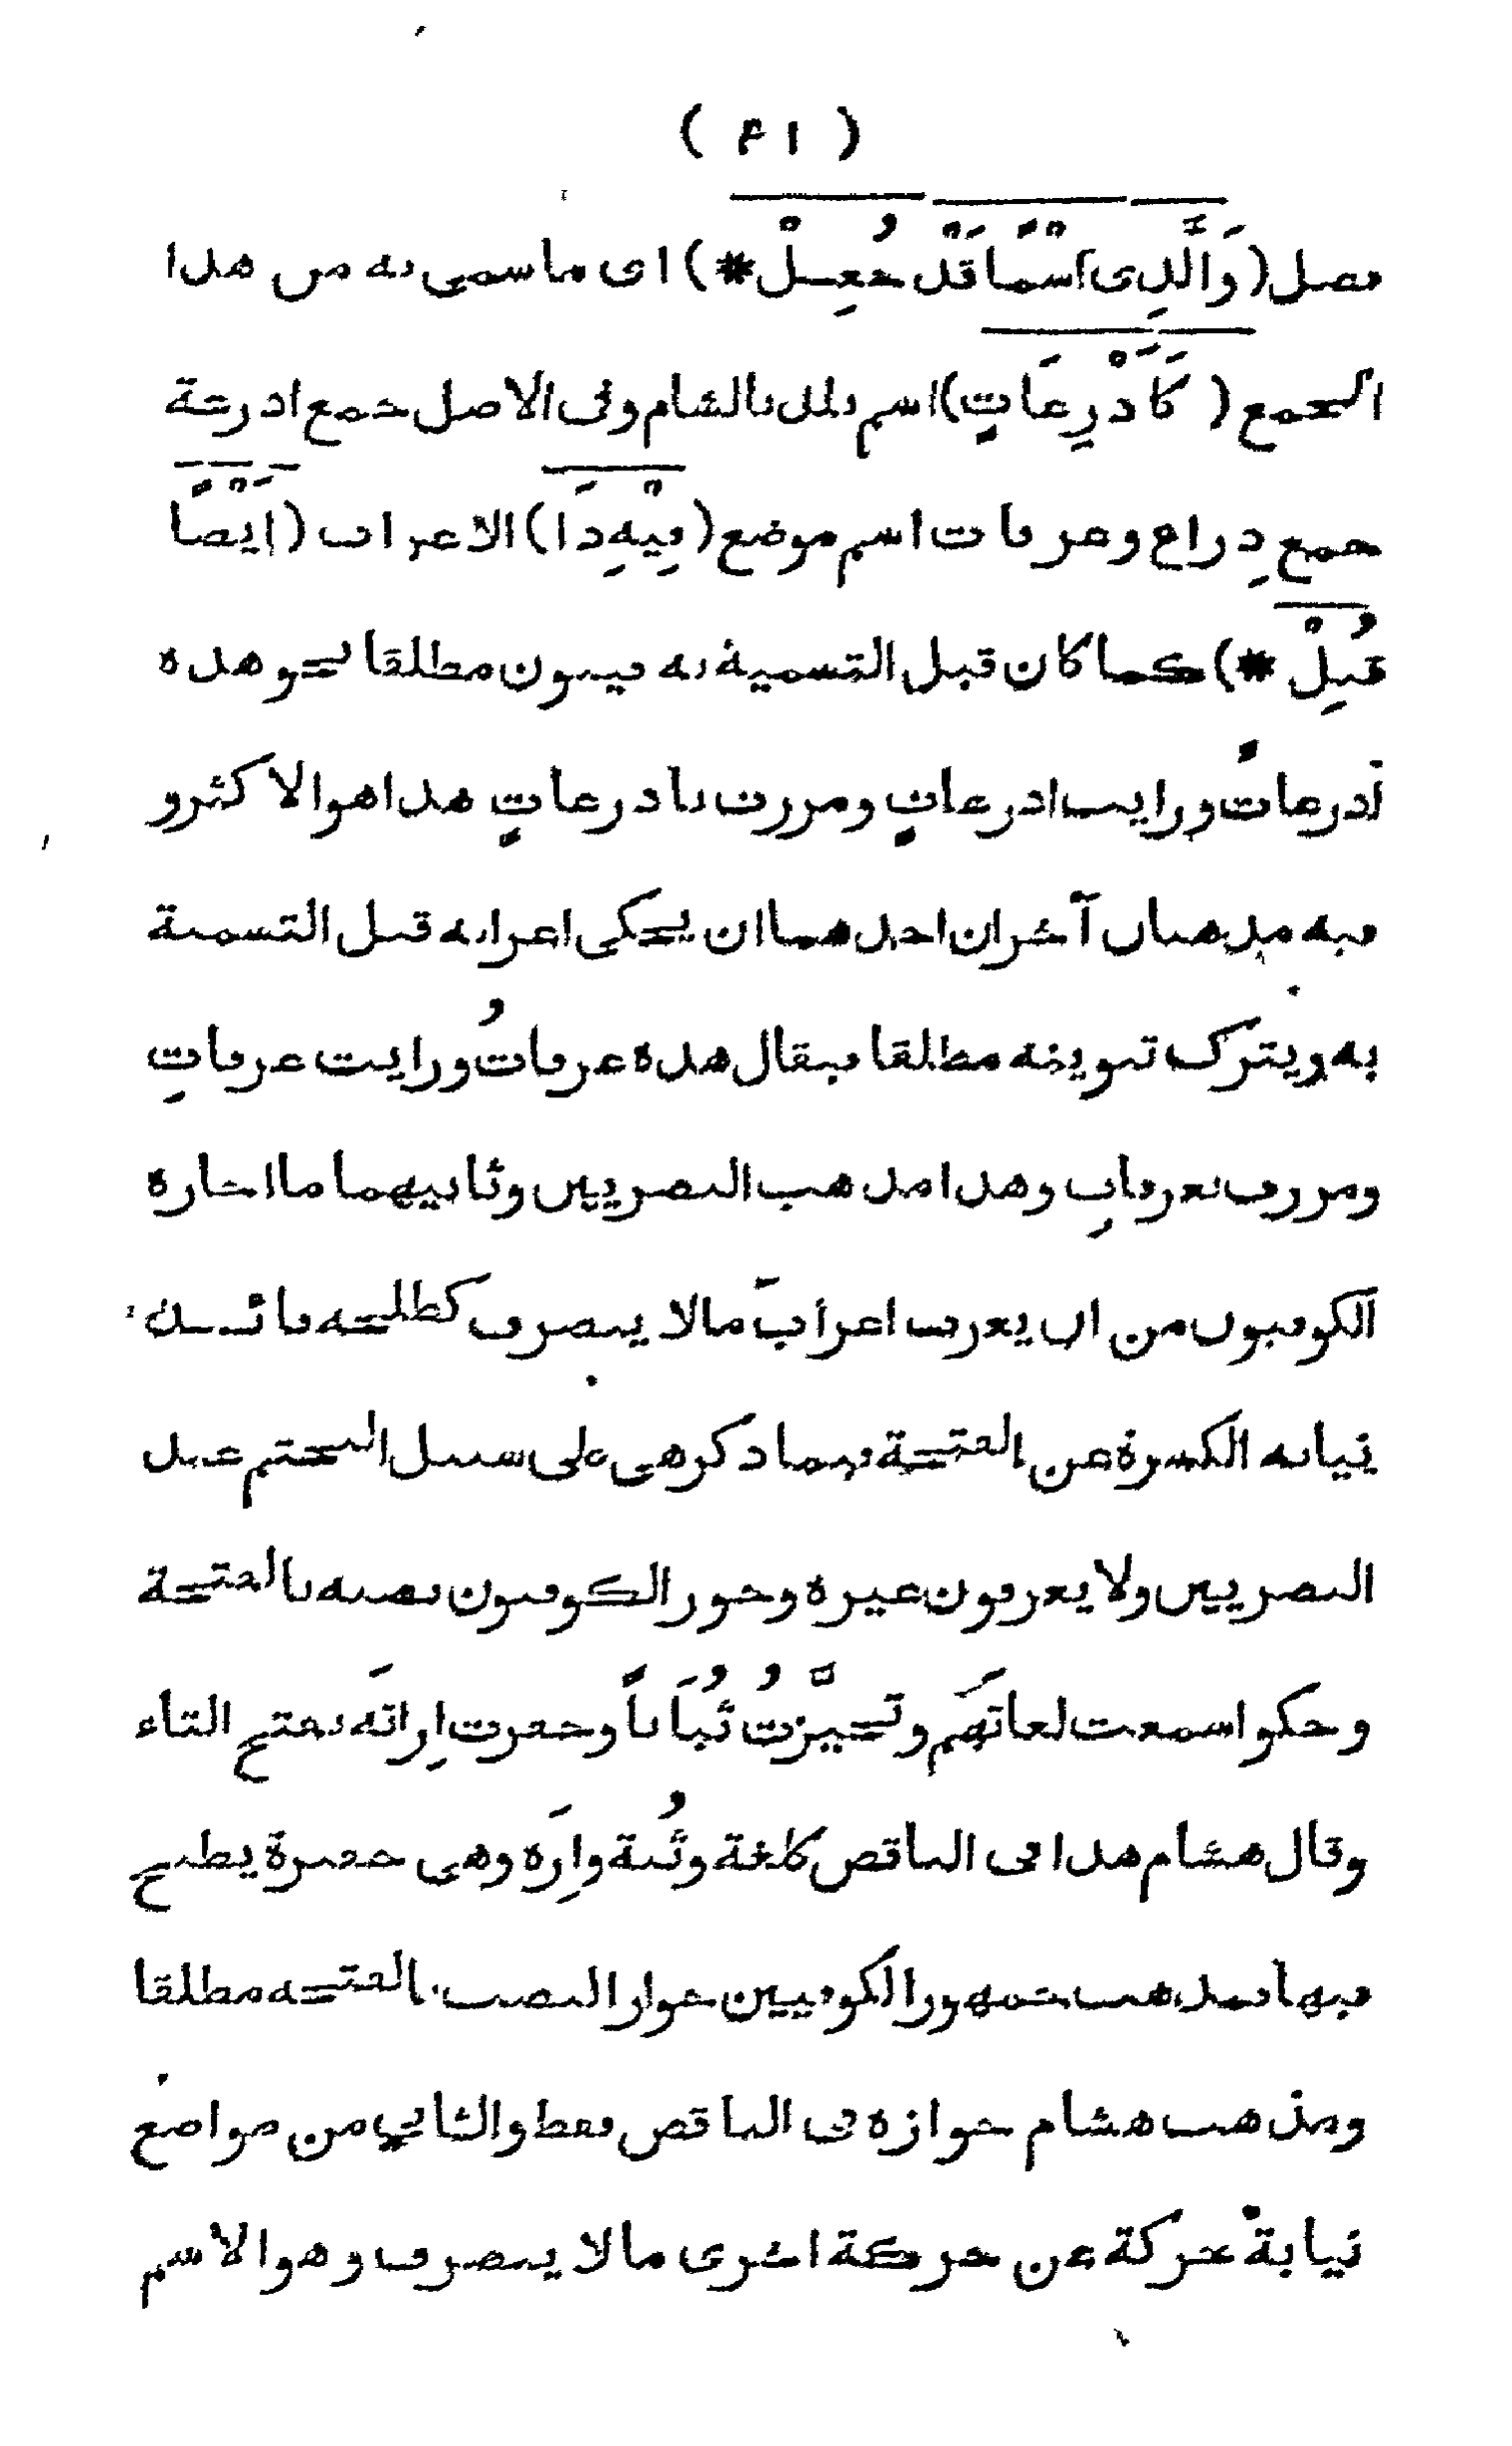 ( ٤١ )
فصل (وَالَّذِى اسْمًا قَدْ جُعِلْ *) اى ما سمى به من هذا
الجمع (كَأَذْرِعَاتٍ) اسم بلد بالشام وفى الاصل جمع اذرعة
جمع ذِراع وعرفات اسم موضع (فِيْهِ ذَا) الاعراب (اَيْضًا
قُبِلْ *) كما كان قبل التسمية به فينون مطلقا نحو هذه
أذرعاتٌ ورايت اذرعاتٍ ومررت باذرعاتٍ هذا هو الاكثر و
فيه مذهبان آخران احدهما ان يحكى اعرابه قبل التسمية
به ويترك تنوينه مطلقا فيقال هذه عرفاتُ ورايت عرفاتِ
ومررت بعرفاتِ وهذا مذهب البصريين وثانيهما ما اجازه
الكوفيون من ان يعرب اعرابَ ما لا ينصرف كطلحه فائدة
نيابه الكسرة عن الفتحة فيما ذكر هى على سبيل التحتم عند
البصريين ولا يعرفون غيره وجوز الكوفيون نصبه بالفتحة
وحكوا سمعت لغاتَهم وتَحَيَّزتُ ثُبَاتاً وحفرت اِراتَه بفتح التاء
وقال هشام هذا فى الناقص كلغة وثُبة واِرَة وهى حفيرة يطبخ
فيها فمذهب جمهور الكوفيين جواز النصب بالفتحه مطلقا
ومذهب هشام جوازه فى الناقص فقط والثانى من مواضع
نيابة حركة عن حركة اخرى ما لا ينصرف وهو الاسم